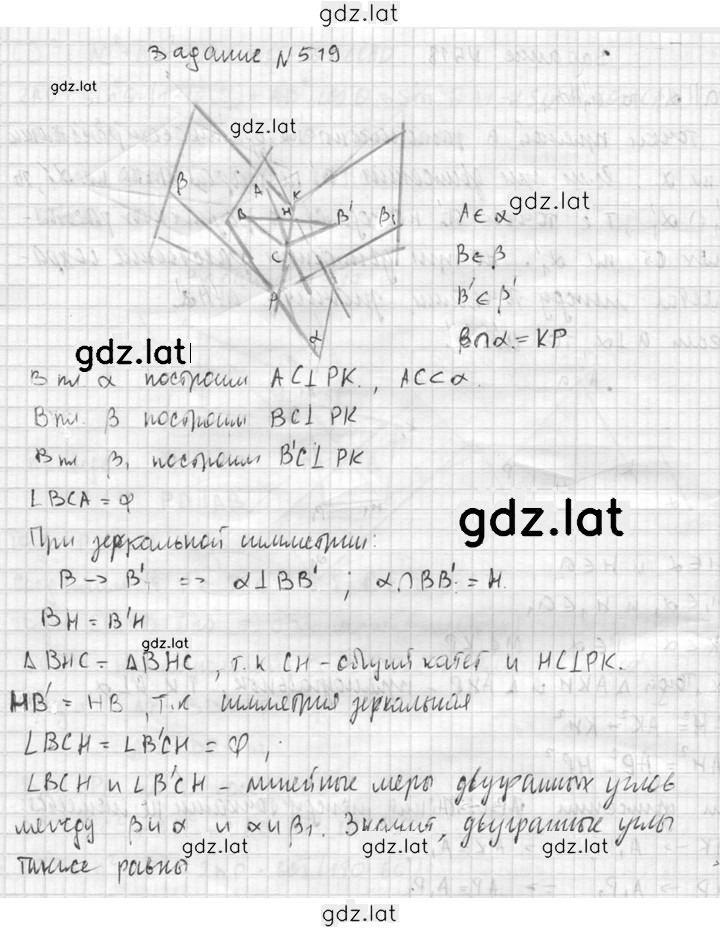 gdz.lat
Задание N 519
gdz.lat
gdz.lat
β A K H B B' β₁ C P α
A∈α gdz.lat
B∈β
B'∈β'
β∩α = KP
gdz.lat
В пл α построим AC⊥PK, AC⊂α.
В пл. β построим BC⊥PK
В пл β₁ построим B'C⊥PK
∠BCA = φ
gdz.lat
При зеркальной симметрии:
B → B' => α⊥BB' ; α∩BB' = H.
BH = B'H
gdz.lat
ΔBHC = ΔB'HC, т.к CH - общий катет и HC⊥PK.
HB' = HB, т.к симметрия зеркальная
∠BCH = ∠B'CH = φ,
∠BCH и ∠B'CH - линейные меры двугранных углов
между β и α и α и β₁. Значит, двугранные углы
также равны
gdz.lat gdz.lat gdz.lat
gdz.lat